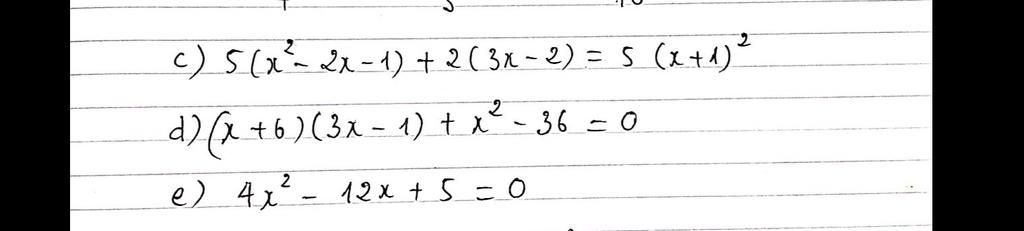 c) 5(x² - 2x - 1) + 2(3x - 2) = 5 (x+1)²
d) (x + 6)(3x - 1) + x² - 36 = 0
e) 4x² - 12x + 5 = 0